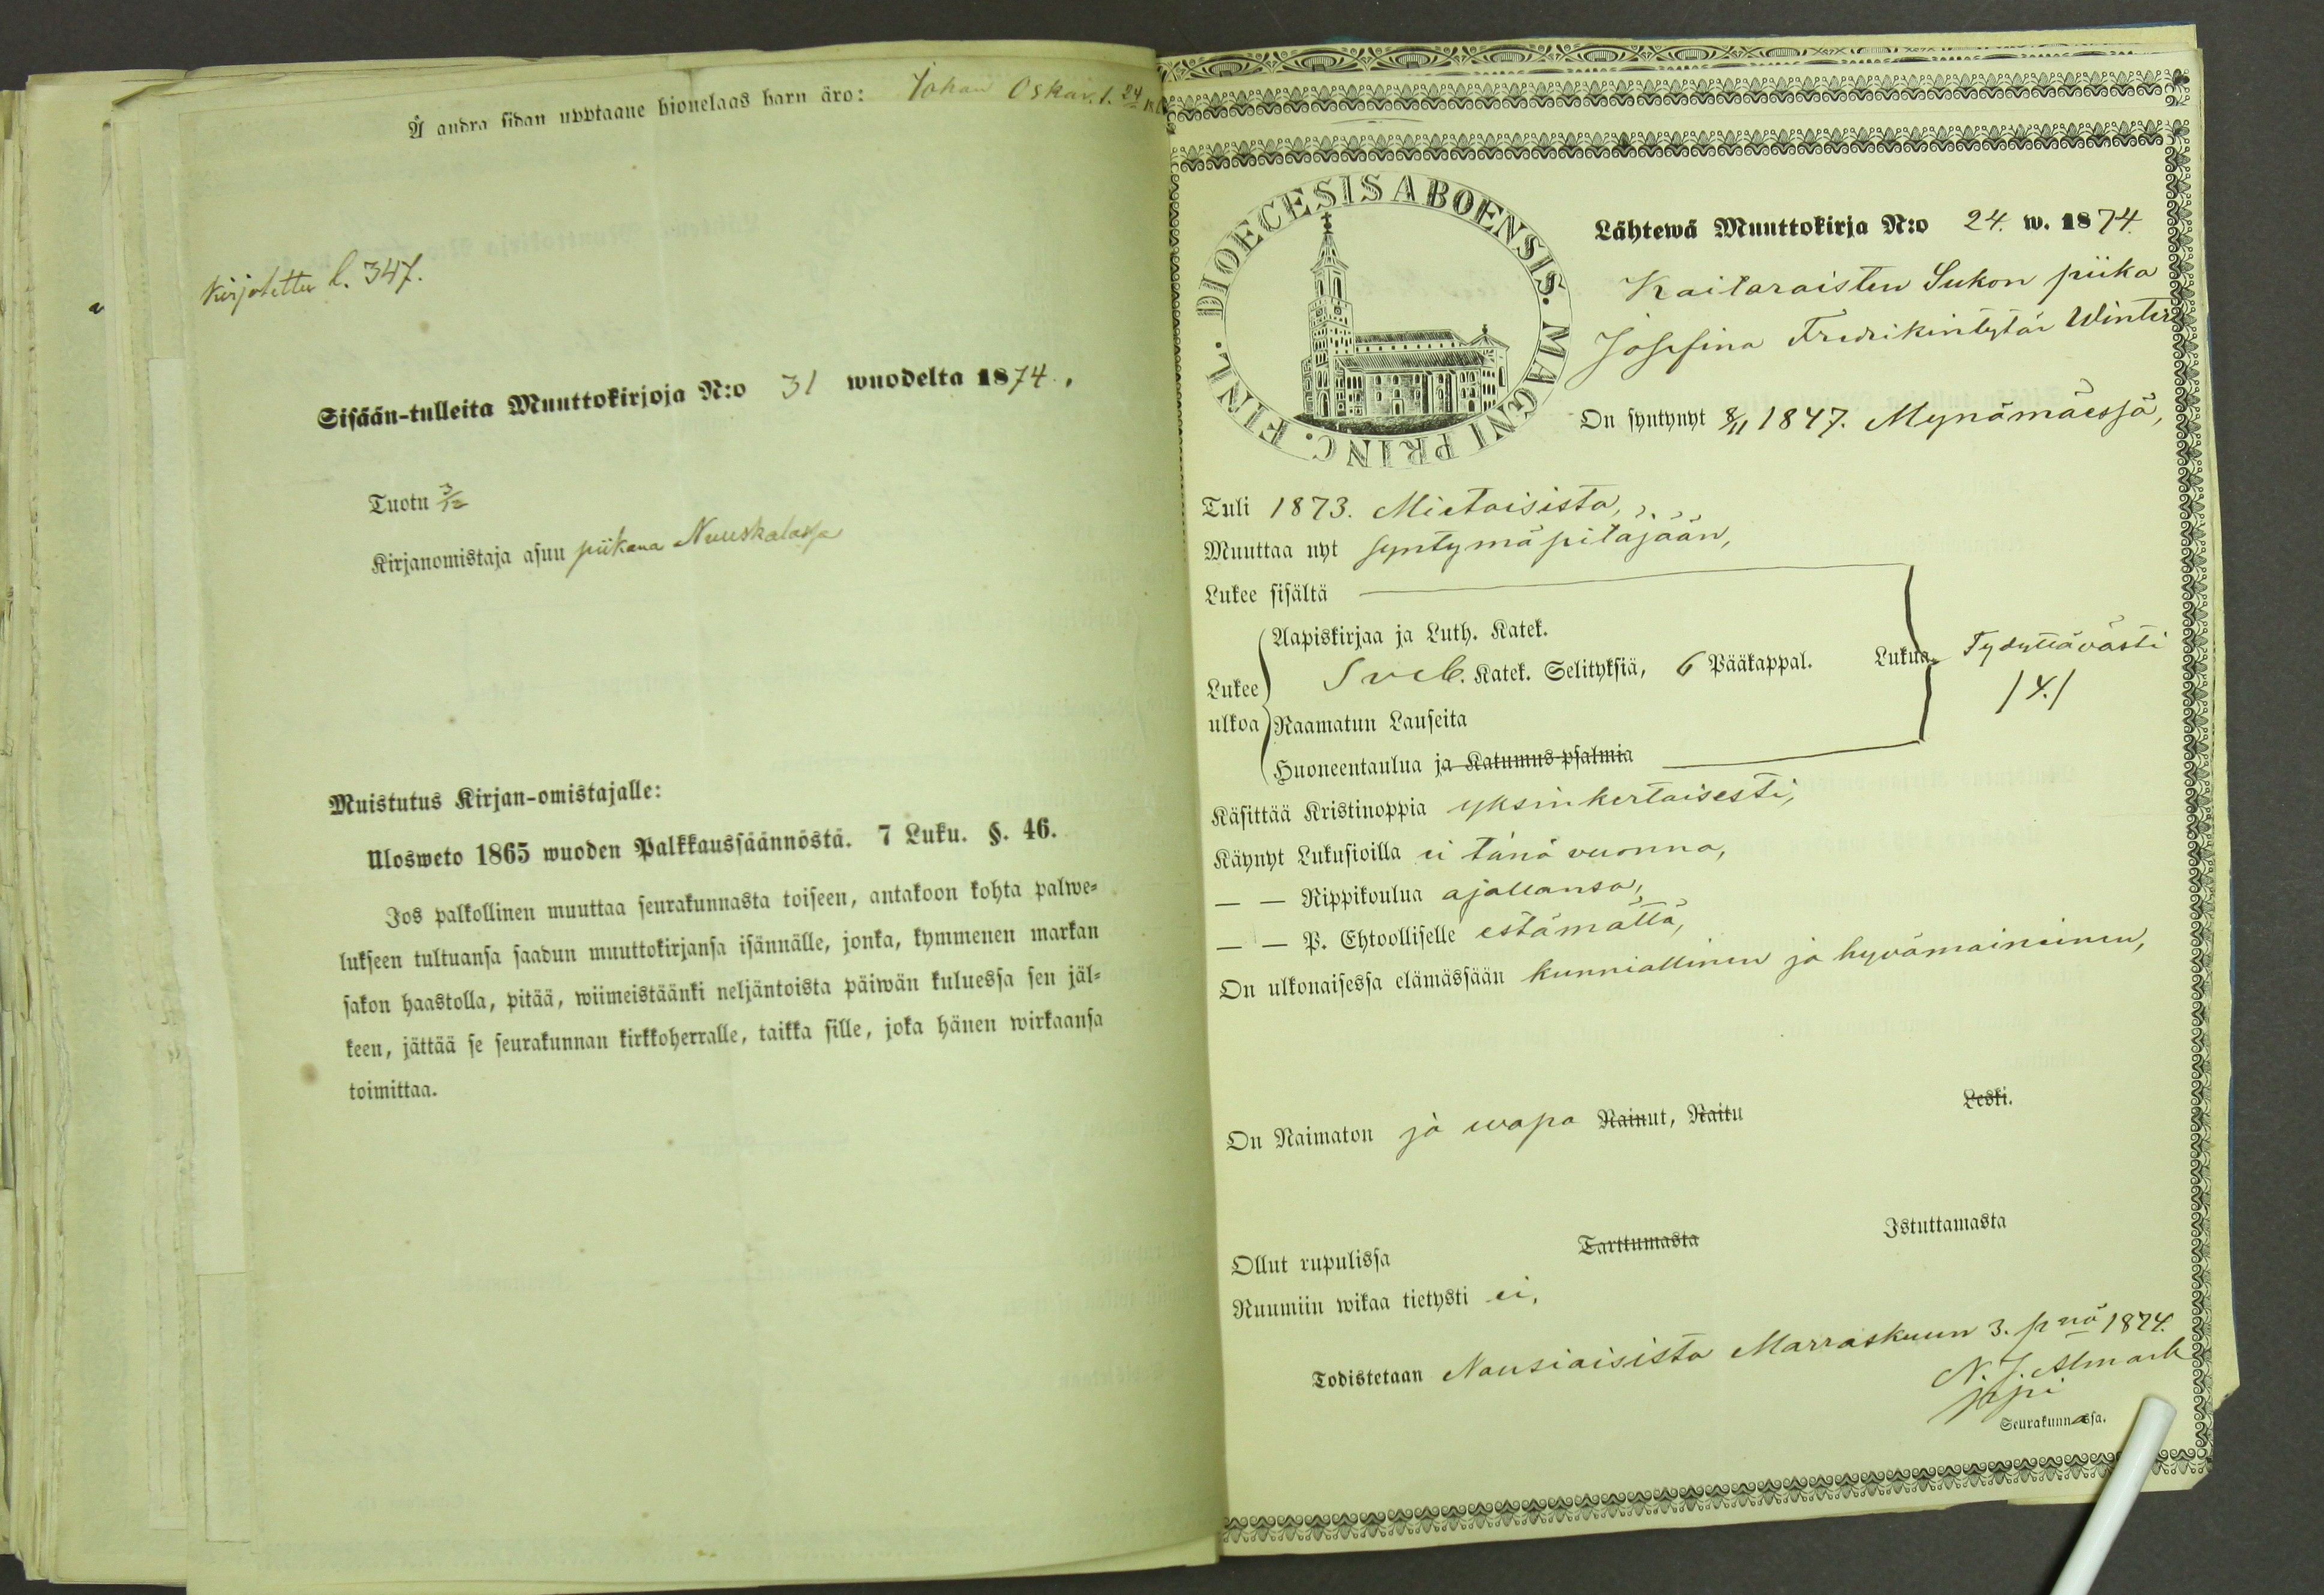 Å andra sidan upptagne hionelags barn äro: Johan Oskar. f. 24
Kirjotettu l. 347.
Sisään-tulleita Muuttokirjoja N:o 31 wuodelta 1874.
Tuotu 3/12
Kirjanomistaja asuu piikana Nuuskalassa
Muistutus Kirjan-omistajalle:
Ulosweto 1865 wuoden Palkkaussäännöstä. 7 Luku. §. 46.
Jos palkollinen muuttaa seurakunnasta toiseen, antakoon kohta palwe-
lukseen tultuansa saadun muuttokirjansa isännälle, jonka, kymmenen markan
sakon haastolla, pitää, wiimeistäänki neljäntoista päiwän kuluessa sen jäl-
keen, jättää se seurakunnan kirkkoherralle, taikka sille, joka hänen wirkaansa
toimittaa.
DIOECESIS ABOENSIS. MAGNI PRINC. FINL.
Lähtewä Muuttokirja N:o 24. w. 1874.
Kaitaraisten Sukon piika
Josefina Fredrikintytär Winter
On syntynyt 8/11 1847. Mynämäessä,
Tuli 1873. Mietoisista,
Muuttaa nyt syntymäpitäjään,
Lukee sisältä
Lukee ulkoa
Aapiskirjaa ja Luth. Katek.
Sveb. Katek. Selityksiä, 6 Pääkappal. Lukua
Tydyttävästi
/4./
Raamatun Lauseita
Huoneentaulua ja Katumus-psalmia
Käsittää Kristinoppia yksinkertaisesti,
Käynyt Lukusioilla ei tänä vuonna,
— — Rippikoulua ajallansa,
— — P. Ehtoolliselle estämättä,
On ulkonaisessa elämässään kunniallinen ja hyvämaineinen,
On Naimaton ja wapa Nainut, Naitu Leski.
Ollut rupulissa Tarttumasta Istuttamasta
Ruumiin wikaa tietysti ei,
Todistetaan Nousiaisista Marraskuun 3. pnä 1874.
N. J. Almark
Seurakunnassa.